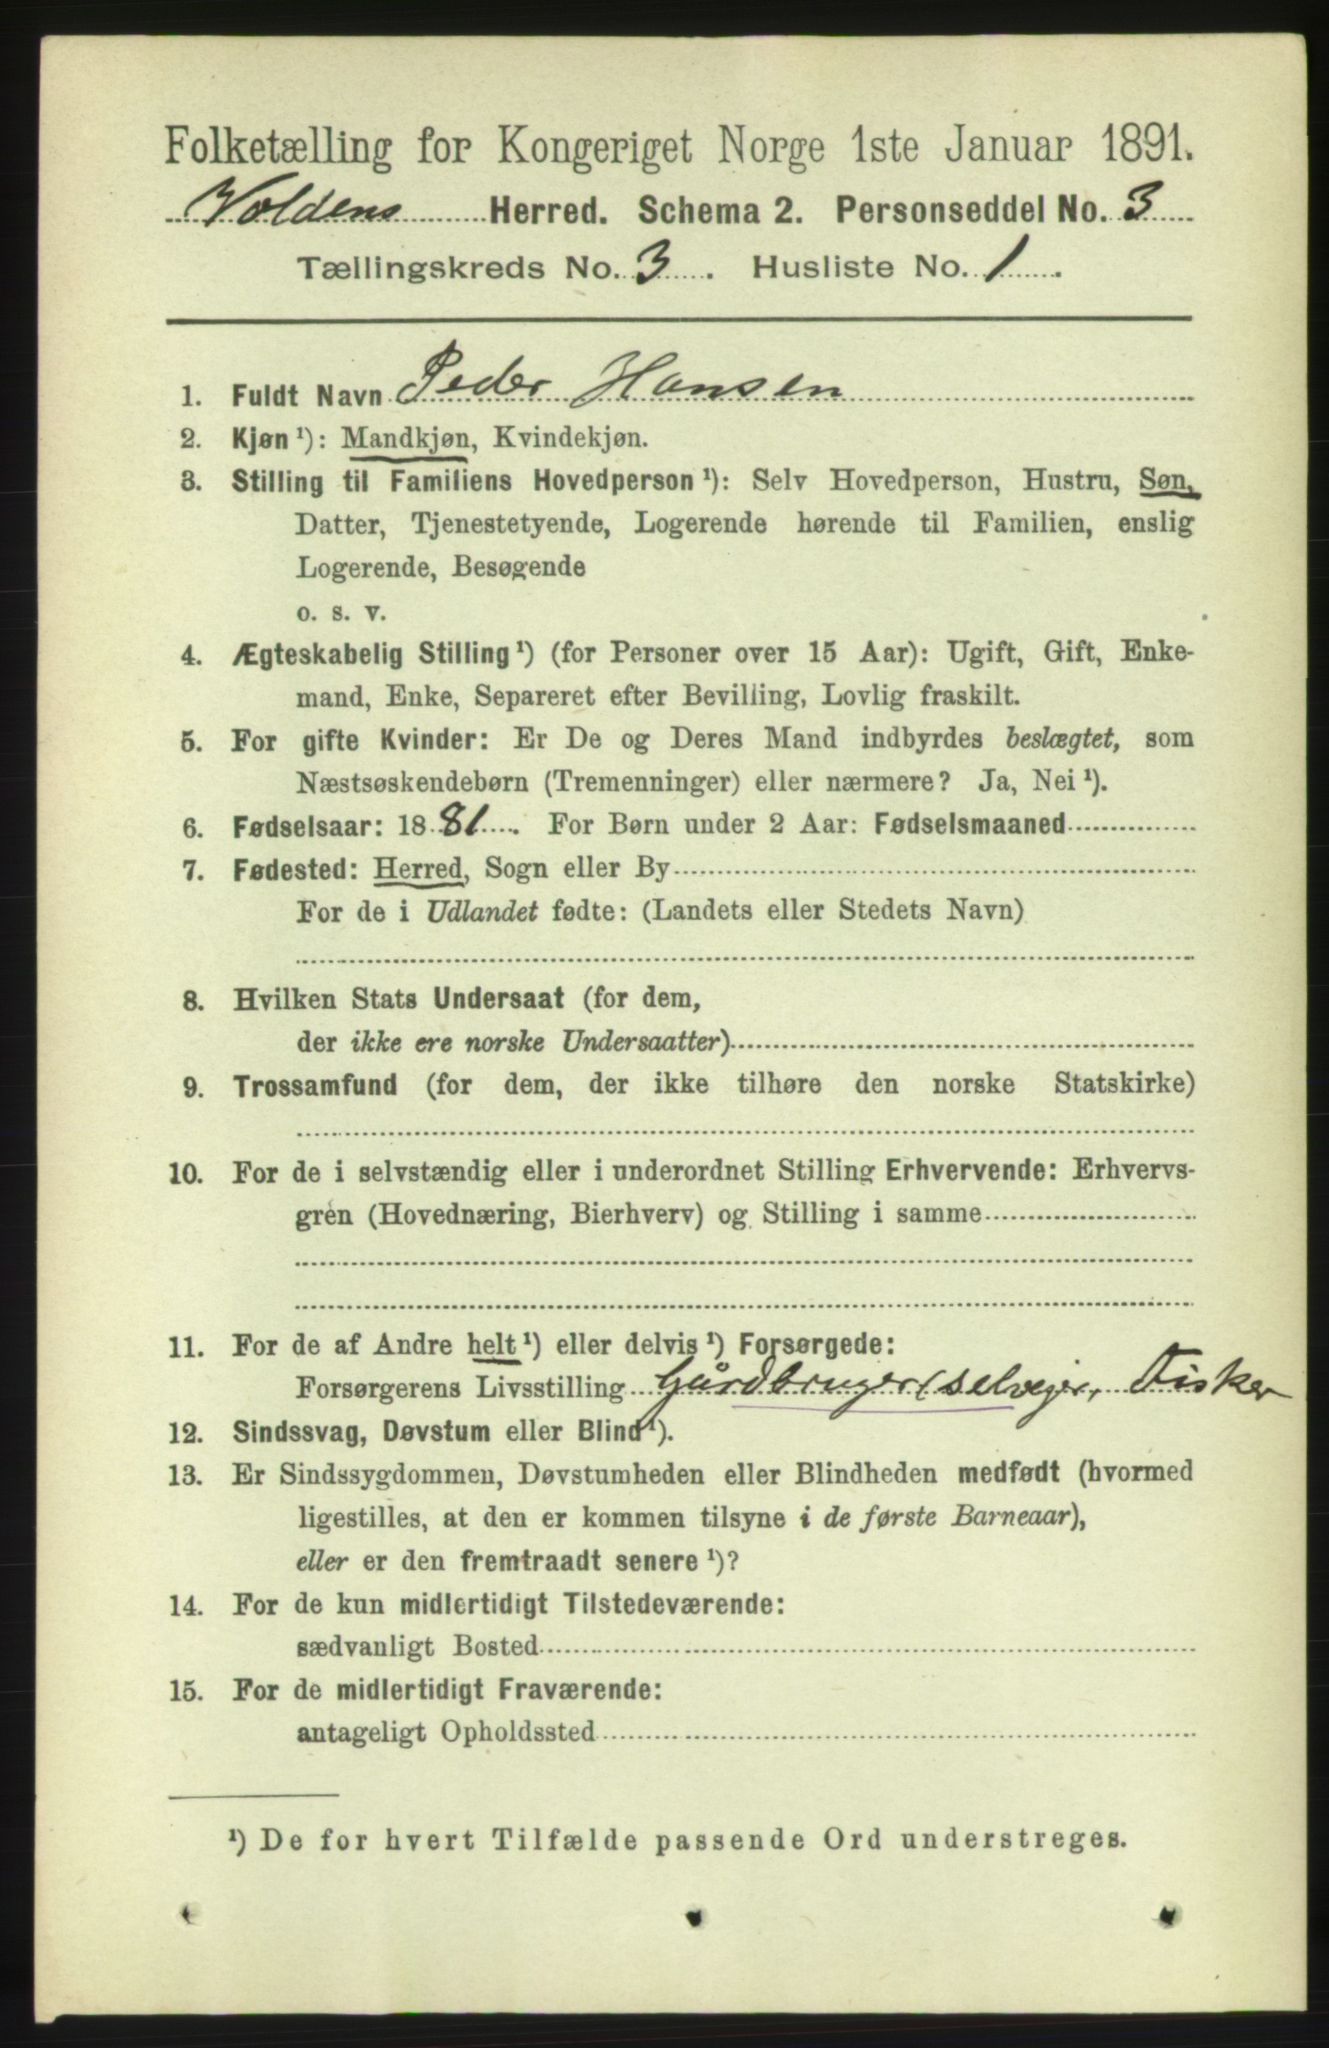 Folketælling for Kongeriget Norge 1ste Januar 1891.
Voldens Herred. Schema 2. Personseddel No. 3
Tællingskreds No. 3. Husliste No. 1.
1. Fuldt Navn Peder Hansen
2. Kjøn ¹): Mandkjøn, Kvindekjøn.
3. Stilling til Familiens Hovedperson ¹): Selv Hovedperson, Hustru, Søn,
Datter, Tjenestetyende, Logerende hørende til Familien, enslig
Logerende, Besøgende
o. s. v.
4. Ægteskabelig Stilling ¹) (for Personer over 15 Aar): Ugift, Gift, Enke-
mand, Enke, Separeret efter Bevilling, Lovlig fraskilt.
5. For gifte Kvinder: Er De og Deres Mand indbyrdes beslægtet, som
Næstsøskendebørn (Tremenninger) eller nærmere? Ja, Nei ¹).
6. Fødselsaar: 1881. For Børn under 2 Aar: Fødselsmaaned
7. Fødested: Herred, Sogn eller By
For de i Udlandet fødte: (Landets eller Stedets Navn)
8. Hvilken Stats Undersaat (for dem,
der ikke ere norske Undersaatter)
9. Trossamfund (for dem, der ikke tilhøre den norske Statskirke)
10. For de i selvstændig eller i underordnet Stilling Erhvervende: Erhvervs-
gren (Hovednæring, Bierhverv) og Stilling i samme
11. For de af Andre helt ¹) eller delvis ¹) Forsørgede:
Forsørgerens Livsstilling Gårdbruger (selvejer, Fisker
12. Sindssvag, Døvstum eller Blind ¹).
13. Er Sindssygdommen, Døvstumheden eller Blindheden medfødt (hvormed
ligestilles, at den er kommen tilsyne i de første Barneaar),
eller er den fremtraadt senere ¹)?
14. For de kun midlertidigt Tilstedeværende:
sædvanligt Bosted
15. For de midlertidigt Fraværende:
antageligt Opholdssted
¹) De for hvert Tilfælde passende Ord understreges.